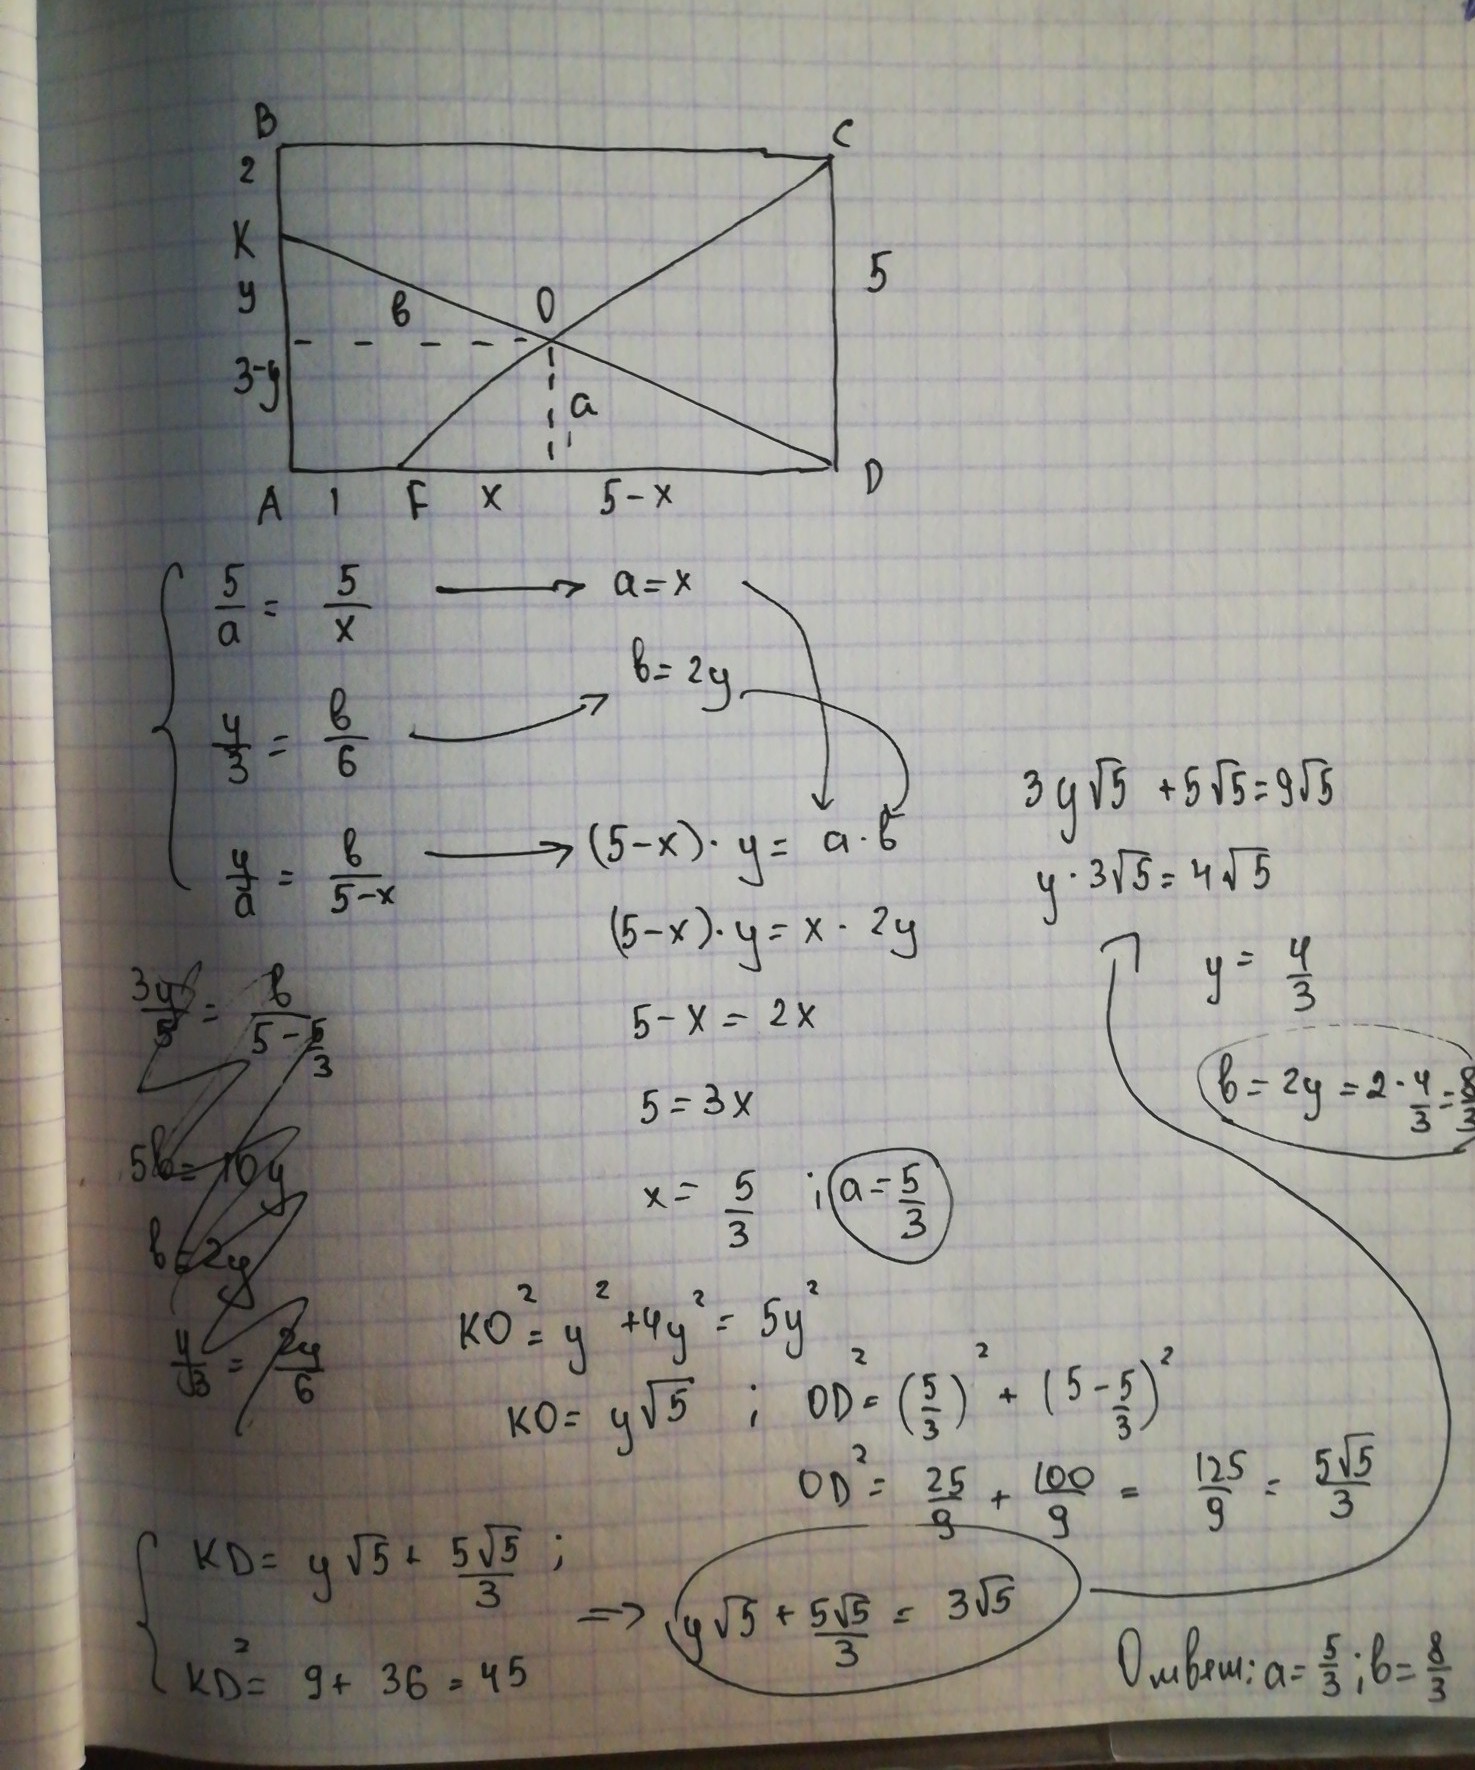 B
C
2
K
y
в
O
5
3-y
a
A 1 F x 5-x D
5/a = 5/x → a=x
в=2y
y/3 = в/6
y/a = в/(5-x) → (5-x)·y= a·в
(5-x)·y= x·2y
5-x=2x
5=3x
x= 5/3 ; a=5/3
3y√5 +5√5=9√5
y·3√5=4√5
y= 4/3
в=2y=2·4/3=8/3
в/(5-5/3)
5в=10y
в=2y
y/3 = 2y/6
KO²=y²+4y²=5y²
KO= y√5 ; OD²=(5/3)²+(5-5/3)²
OD²= 25/9 + 100/9 = 125/9 = 5√5/3
KD= y√5+ 5√5/3 ;
KD²= 9+ 36 = 45
=> y√5+5√5/3 = 3√5
Ответ: a=5/3; в=8/3